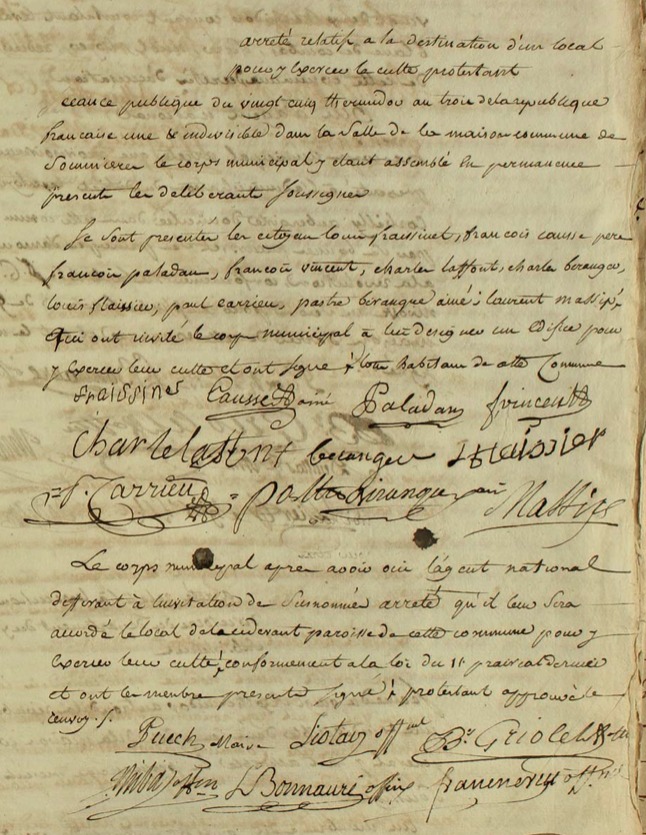 arreté relatif a la destination d'un local
pour y Exercer le culte protestant
ceance publique du vingt cinq thermidor an trois de la republique
francaise une & indivisible dans la Salle de la maison commune de
Sommieres le corps municipal y etant assemblé en permanence
present les deliberants soussignes
Se sont presentés les citoyens louis fraissinet, francois causse pere
francois paladan, francois vincent, charles laffont, charles beranger,
louis flaissier, paul carrieu, pastre berangue ainé, laurent massip,
qui ont invité le corps municipal a leur designer un Edifice pour
y Exercer leur culte et ont signé tous habitans de cette Commune
fraissinet Causse ainé Paladan fvincent
Charle lafont beranger Lflaissier
P. Carrieu pastre Massip
Le corps municipal apres avoir oui l'agent national
differant à l'invitation des Susnommés arreté qu'il leur Sera
accordé le local de la cidevant paroisse de cette commune pour y
Exercer leur culte, conformement a la loi du 11 prairial dernier
et ont les membres presents signé protestant approuvé le
renvoy.
Puech Maire off.nal Griolet
off.in LBonnaure offin